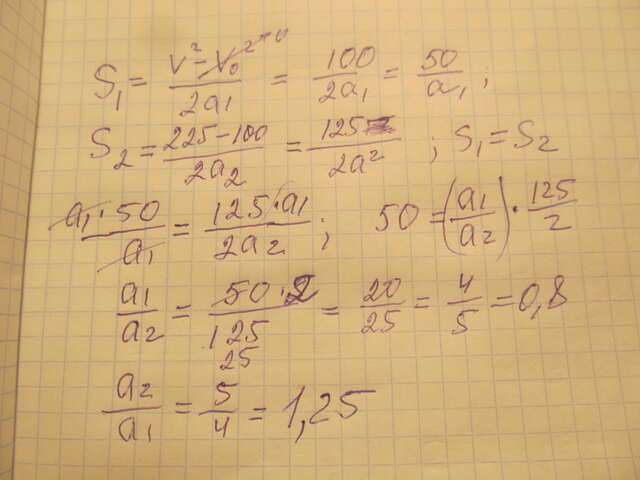 S₁ = (V² - V₀² → 0) / 2a₁ = 100 / 2a₁ = 50 / a₁ ;
S₂ = (225 - 100) / 2a₂ = 125 / 2a² ; S₁ = S₂
a₁ · 50 / a₁ = 125 · a₁ / 2a₂ ; 50 = (a₁ / a₂) · 125 / 2
a₁ / a₂ = 50 · 2 / 125 = 20 / 25 = 4 / 5 = 0,8
25
a₂ / a₁ = 5 / 4 = 1,25